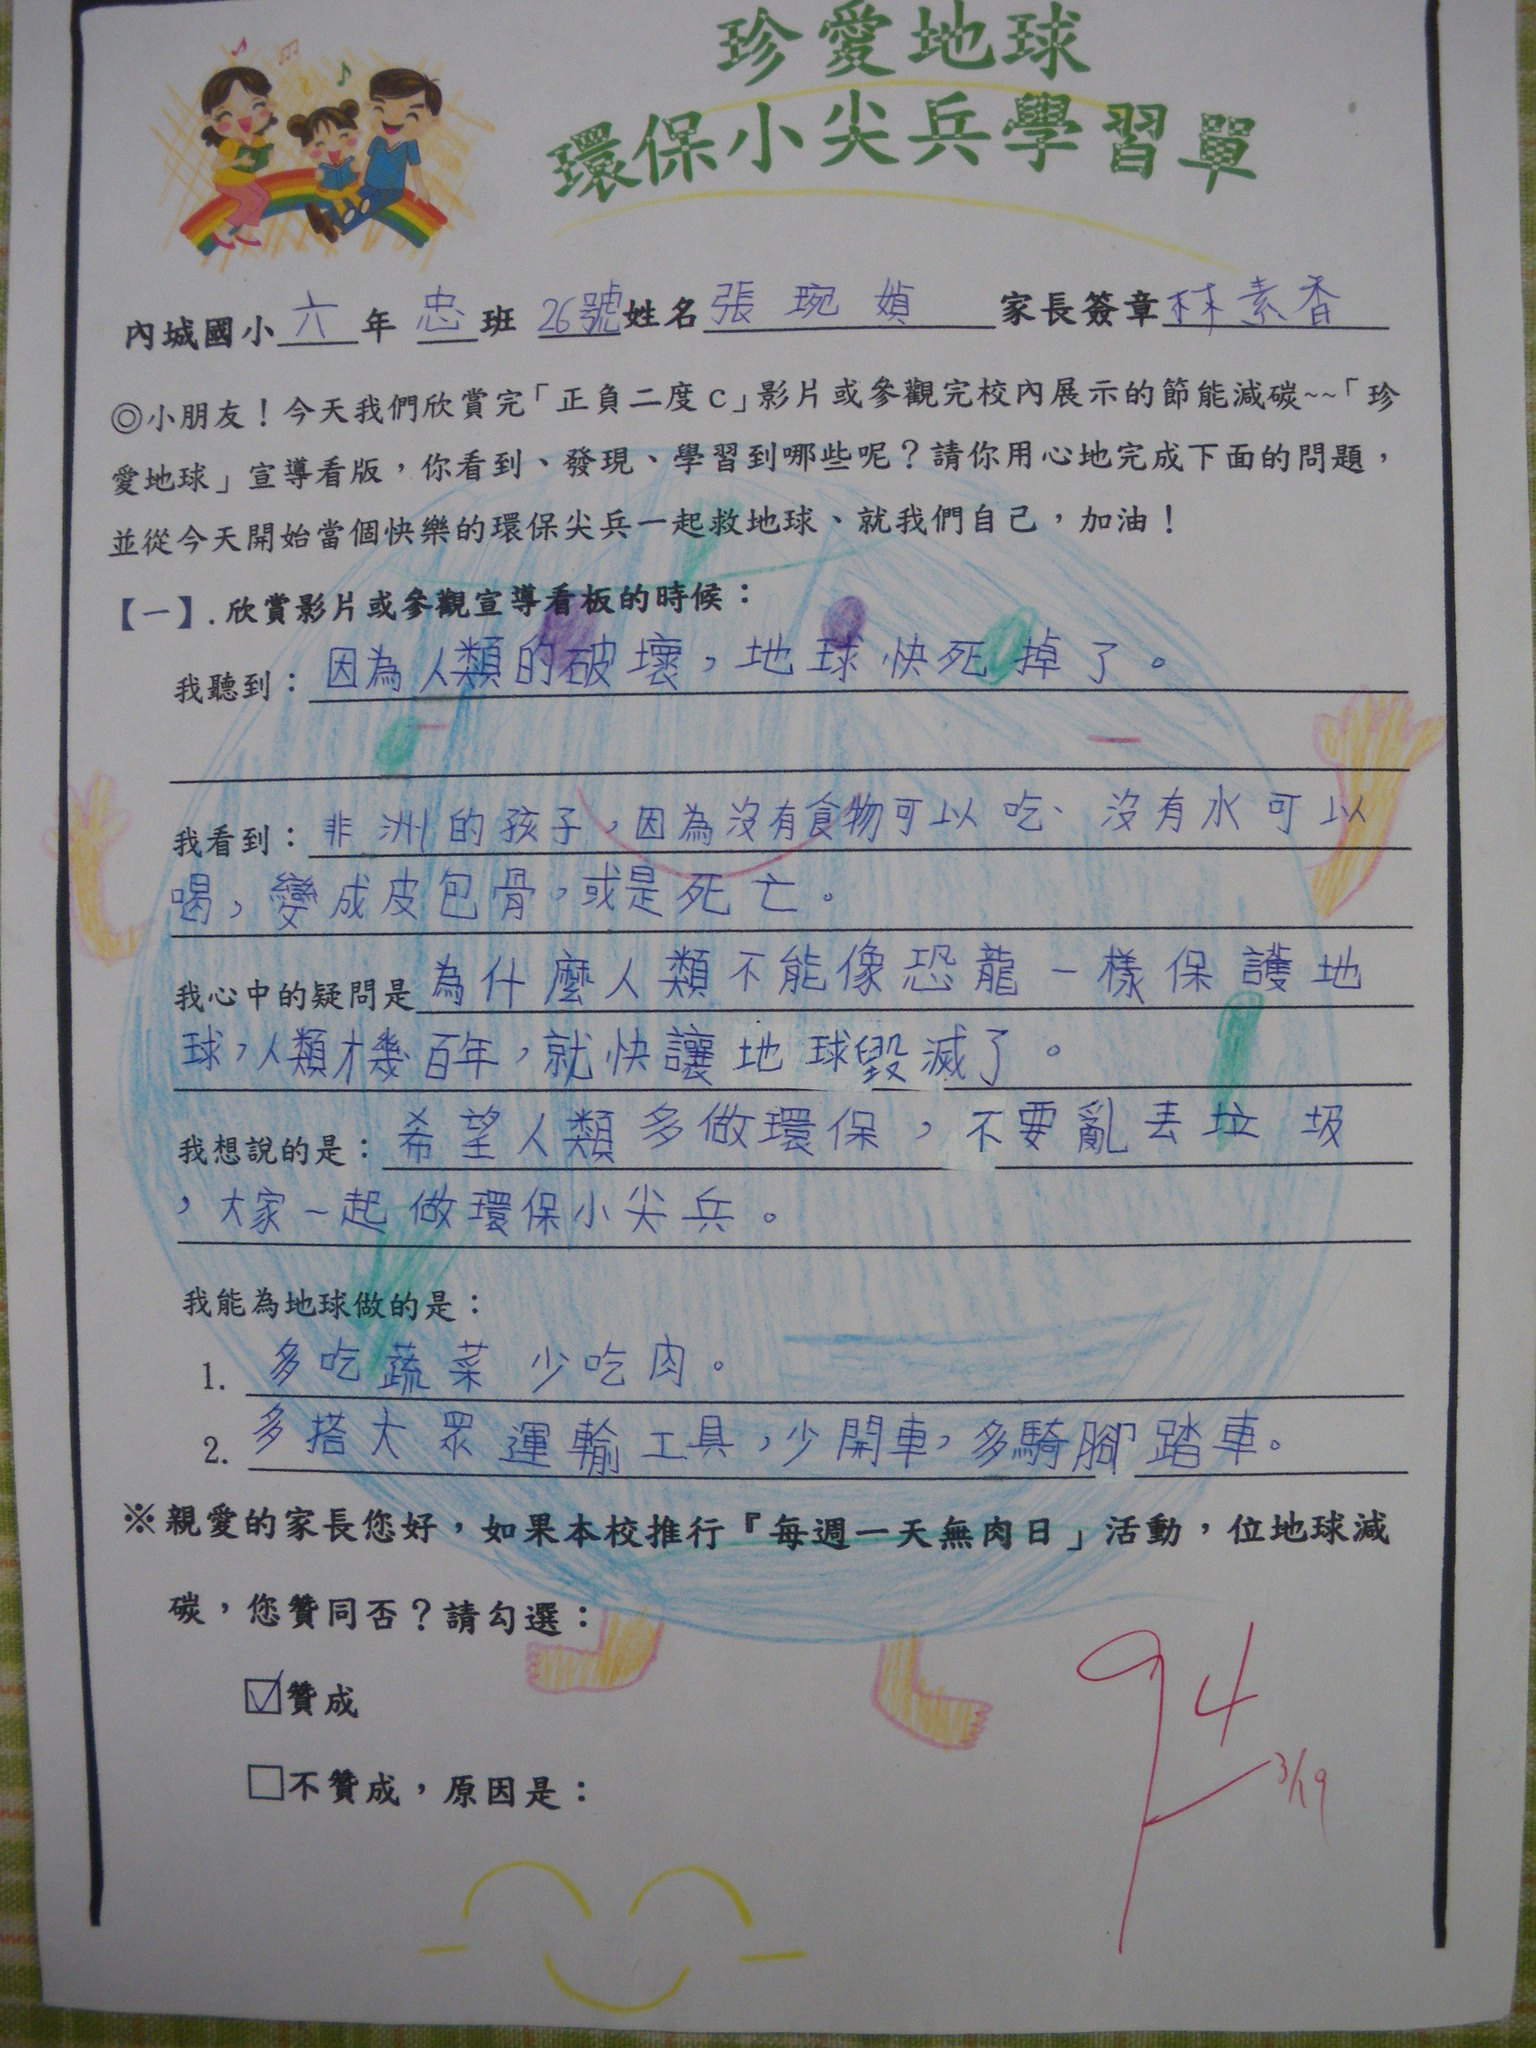 珍愛地球
環保小尖兵學習單
內城國小六年忠班26號姓名張琬媜 家長簽章林素香
◎小朋友！今天我們欣賞完「正負二度c」影片或參觀完校內展示的節能減碳~~「珍
愛地球」宣導看版，你看到、發現、學習到哪些呢？請你用心地完成下面的問題，
並從今天開始當個快樂的環保尖兵一起救地球、就我們自己，加油！
【一】.欣賞影片或參觀宣導看板的時候：
我聽到：因為人類的破壞，地球快死掉了。
我看到：非洲的孩子，因為沒有食物可以吃、沒有水可以
喝，變成皮包骨，或是死亡。
我心中的疑問是為什麼人類不能像恐龍一樣保護地
球，人類才幾百年，就快讓地球毀滅了。
我想說的是：希望人類多做環保，不要亂丟垃圾
，大家一起做環保小尖兵。
我能為地球做的是：
1. 多吃蔬菜少吃肉。
2. 多搭大眾運輸工具，少開車，多騎腳踏車。
※親愛的家長您好，如果本校推行『每週一天無肉日」活動，位地球減
碳，您贊同否？請勾選：
☑贊成
□不贊成，原因是：
94
3/19